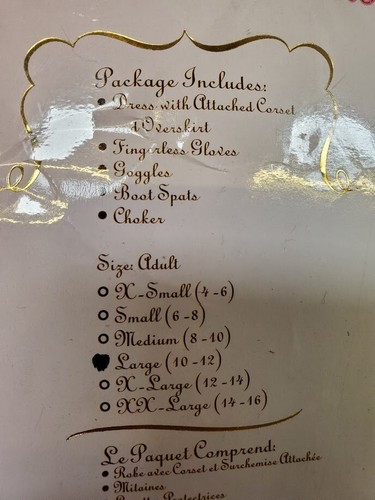 Package Includes:
Dress with Attached Corset
& Overskirt
Fingerless Gloves
Goggles
Boot Spats
Choker
Size: Adult
X-Small (4-6)
Small (6-8)
Medium (8-10)
Large (10-12)
X-Large (12-14)
XX-Large (14-16)
Le Paquet Comprend:
Robe avec Corset et Surchemise Attachée
Mitaines
Lunettes Protectrices